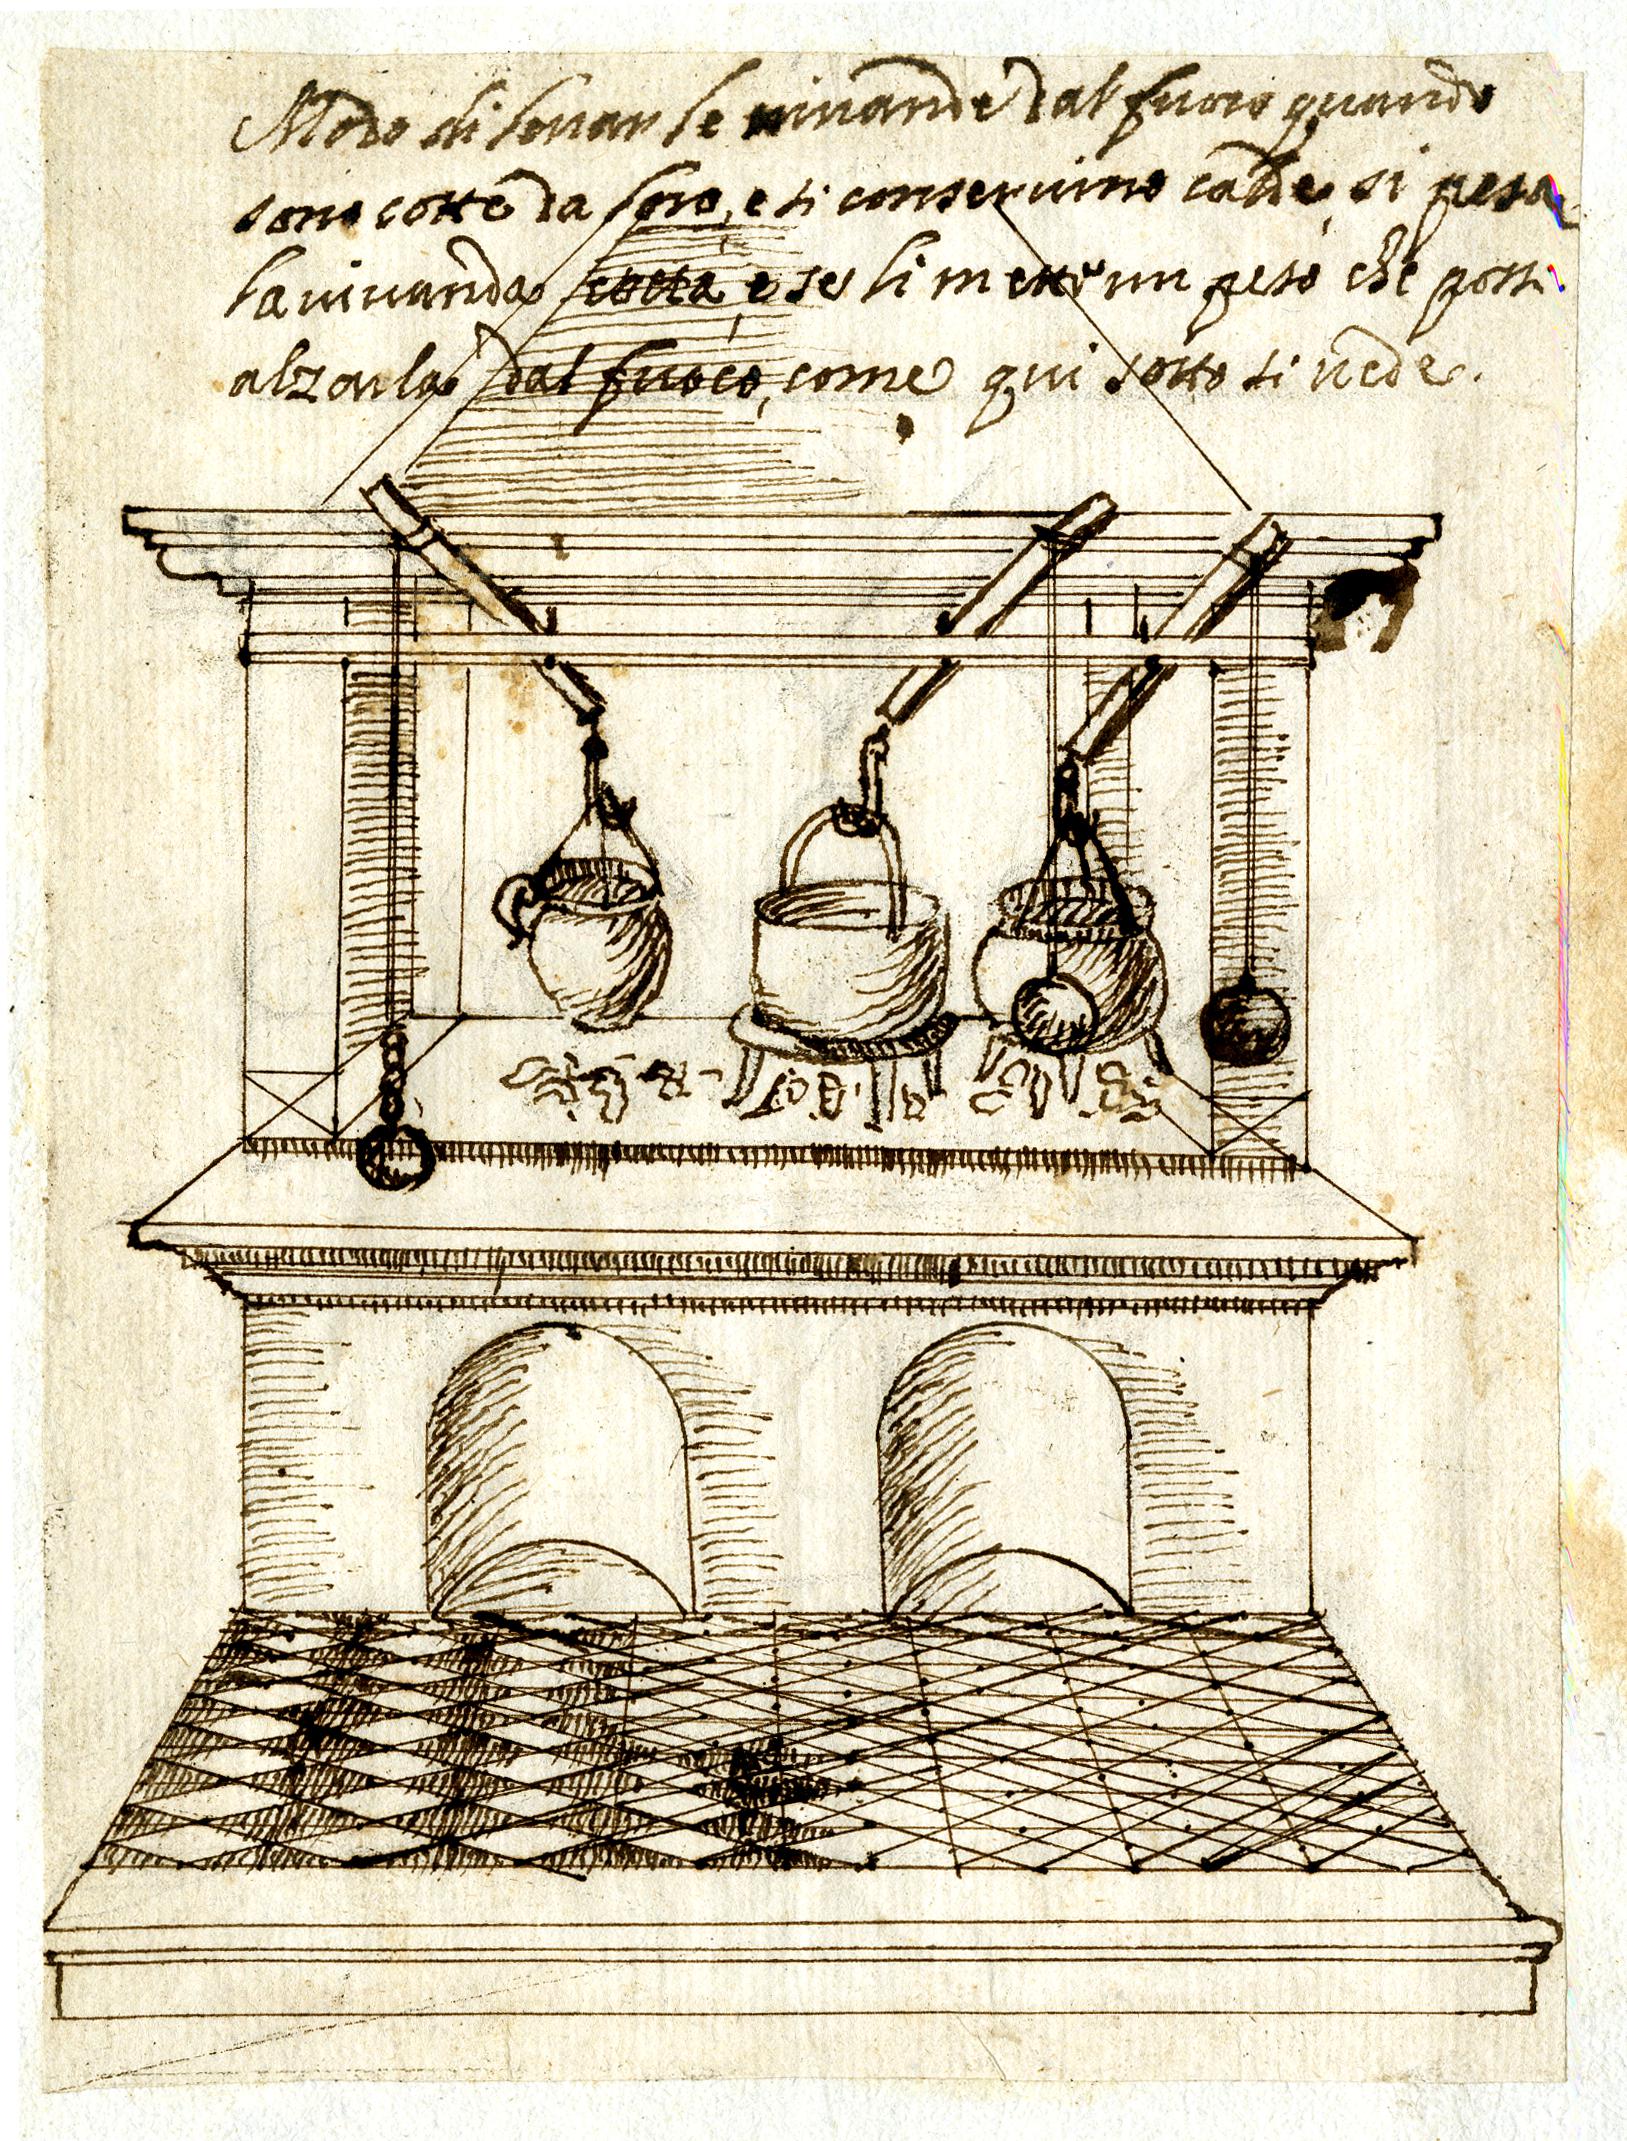 Modo di levar le vivande dal fuoco quando
sono cotte da loro, e si conservino calde, si pesa
la vivanda cotta, e se li mette un peso che possi
alzarla dal fuoco, come qui sotto si vede.